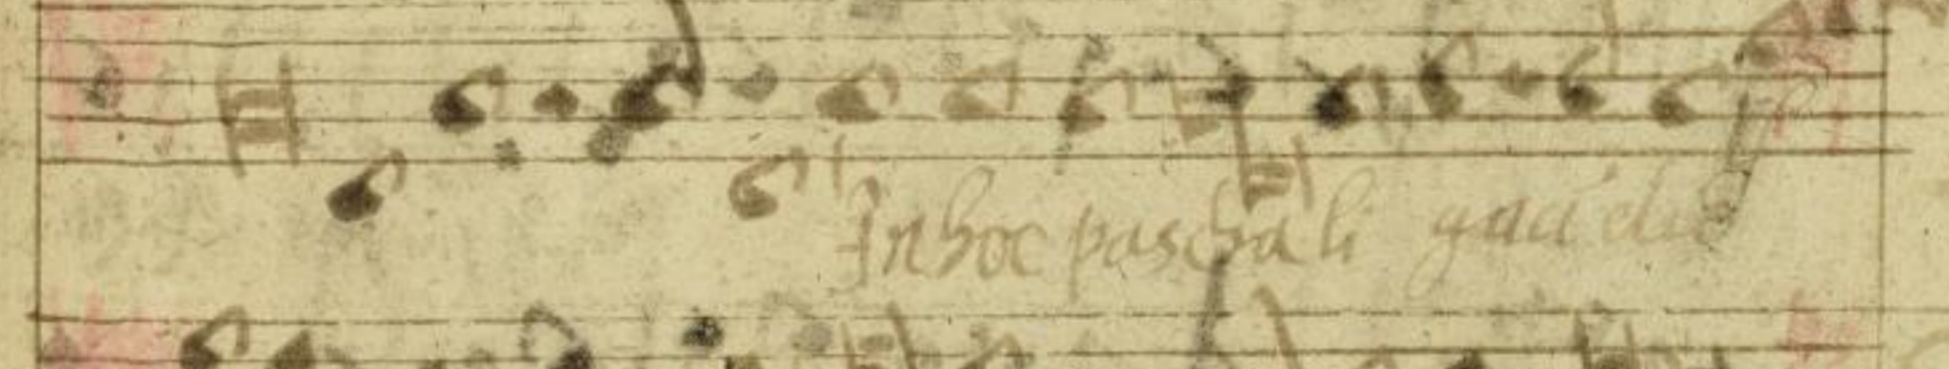 In hoc paschali gaudio